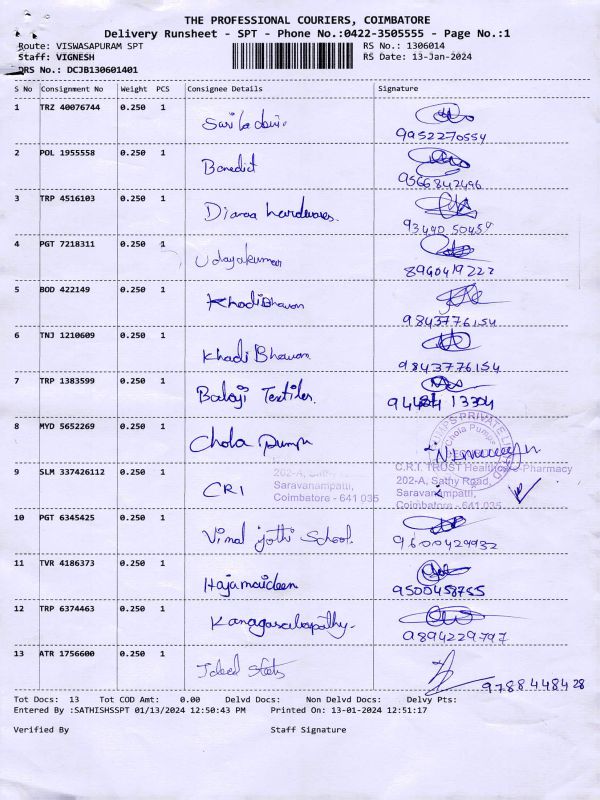 THE PROFESSIONAL COURIERS, COIMBATORE
Delivery Runsheet - SPT - Phone No.:0422-3505555 - Page No.:1
Route: VISWASAPURAM SPT RS No.: 1306014
Staff: VIGNESH RS Date: 13-Jan-2024
DRS No.: DCJB130601401
S No Consignment No Weight PCS Consignee Details Signature
1 TRZ 40076744 0.250 1
9952270554
2 POL 1955558 0.250 1 Benedict
9566842496
3 TRP 4516103 0.250 1 Diana hardwares.
93440 50454
4 PGT 7218311 0.250 1 Udayakumar
8960419222
5 BOD 422149 0.250 1 Khadi Bhavan
9843776154
6 TNJ 1210609 0.250 1 Khadi Bhavan
9843776154
7 TRP 1383599 0.250 1 Balaji Textiles.
13304
8 MYD 5652269 0.250 1 Chola Pump
Chola Pumps PRIVATE
9 SLM 337426112 0.250 1 CRI
202-A, Sathy
Saravanampatti,
Coimbatore - 641 035
C.R.I. TRUST Healthcare Pharmacy
202-A, Sathy Road,
Saravanampatti,
Coimbatore - 641 035
10 PGT 6345425 0.250 1 Vimal jothi School.
9600429932
11 TVR 4186373 0.250 1 Hajamoideen
9500458755
12 TRP 6374463 0.250 1 Kanagasabapathy.
9894229797
13 ATR 1756600 0.250 1
9788448428
Tot Docs: 13 Tot COD Amt: 0.00 Delvd Docs: Non Delvd Docs: Delvy Pts:
Entered By :SATHISHSSPT 01/13/2024 12:50:43 PM Printed On: 13-01-2024 12:51:17
Verified By Staff Signature